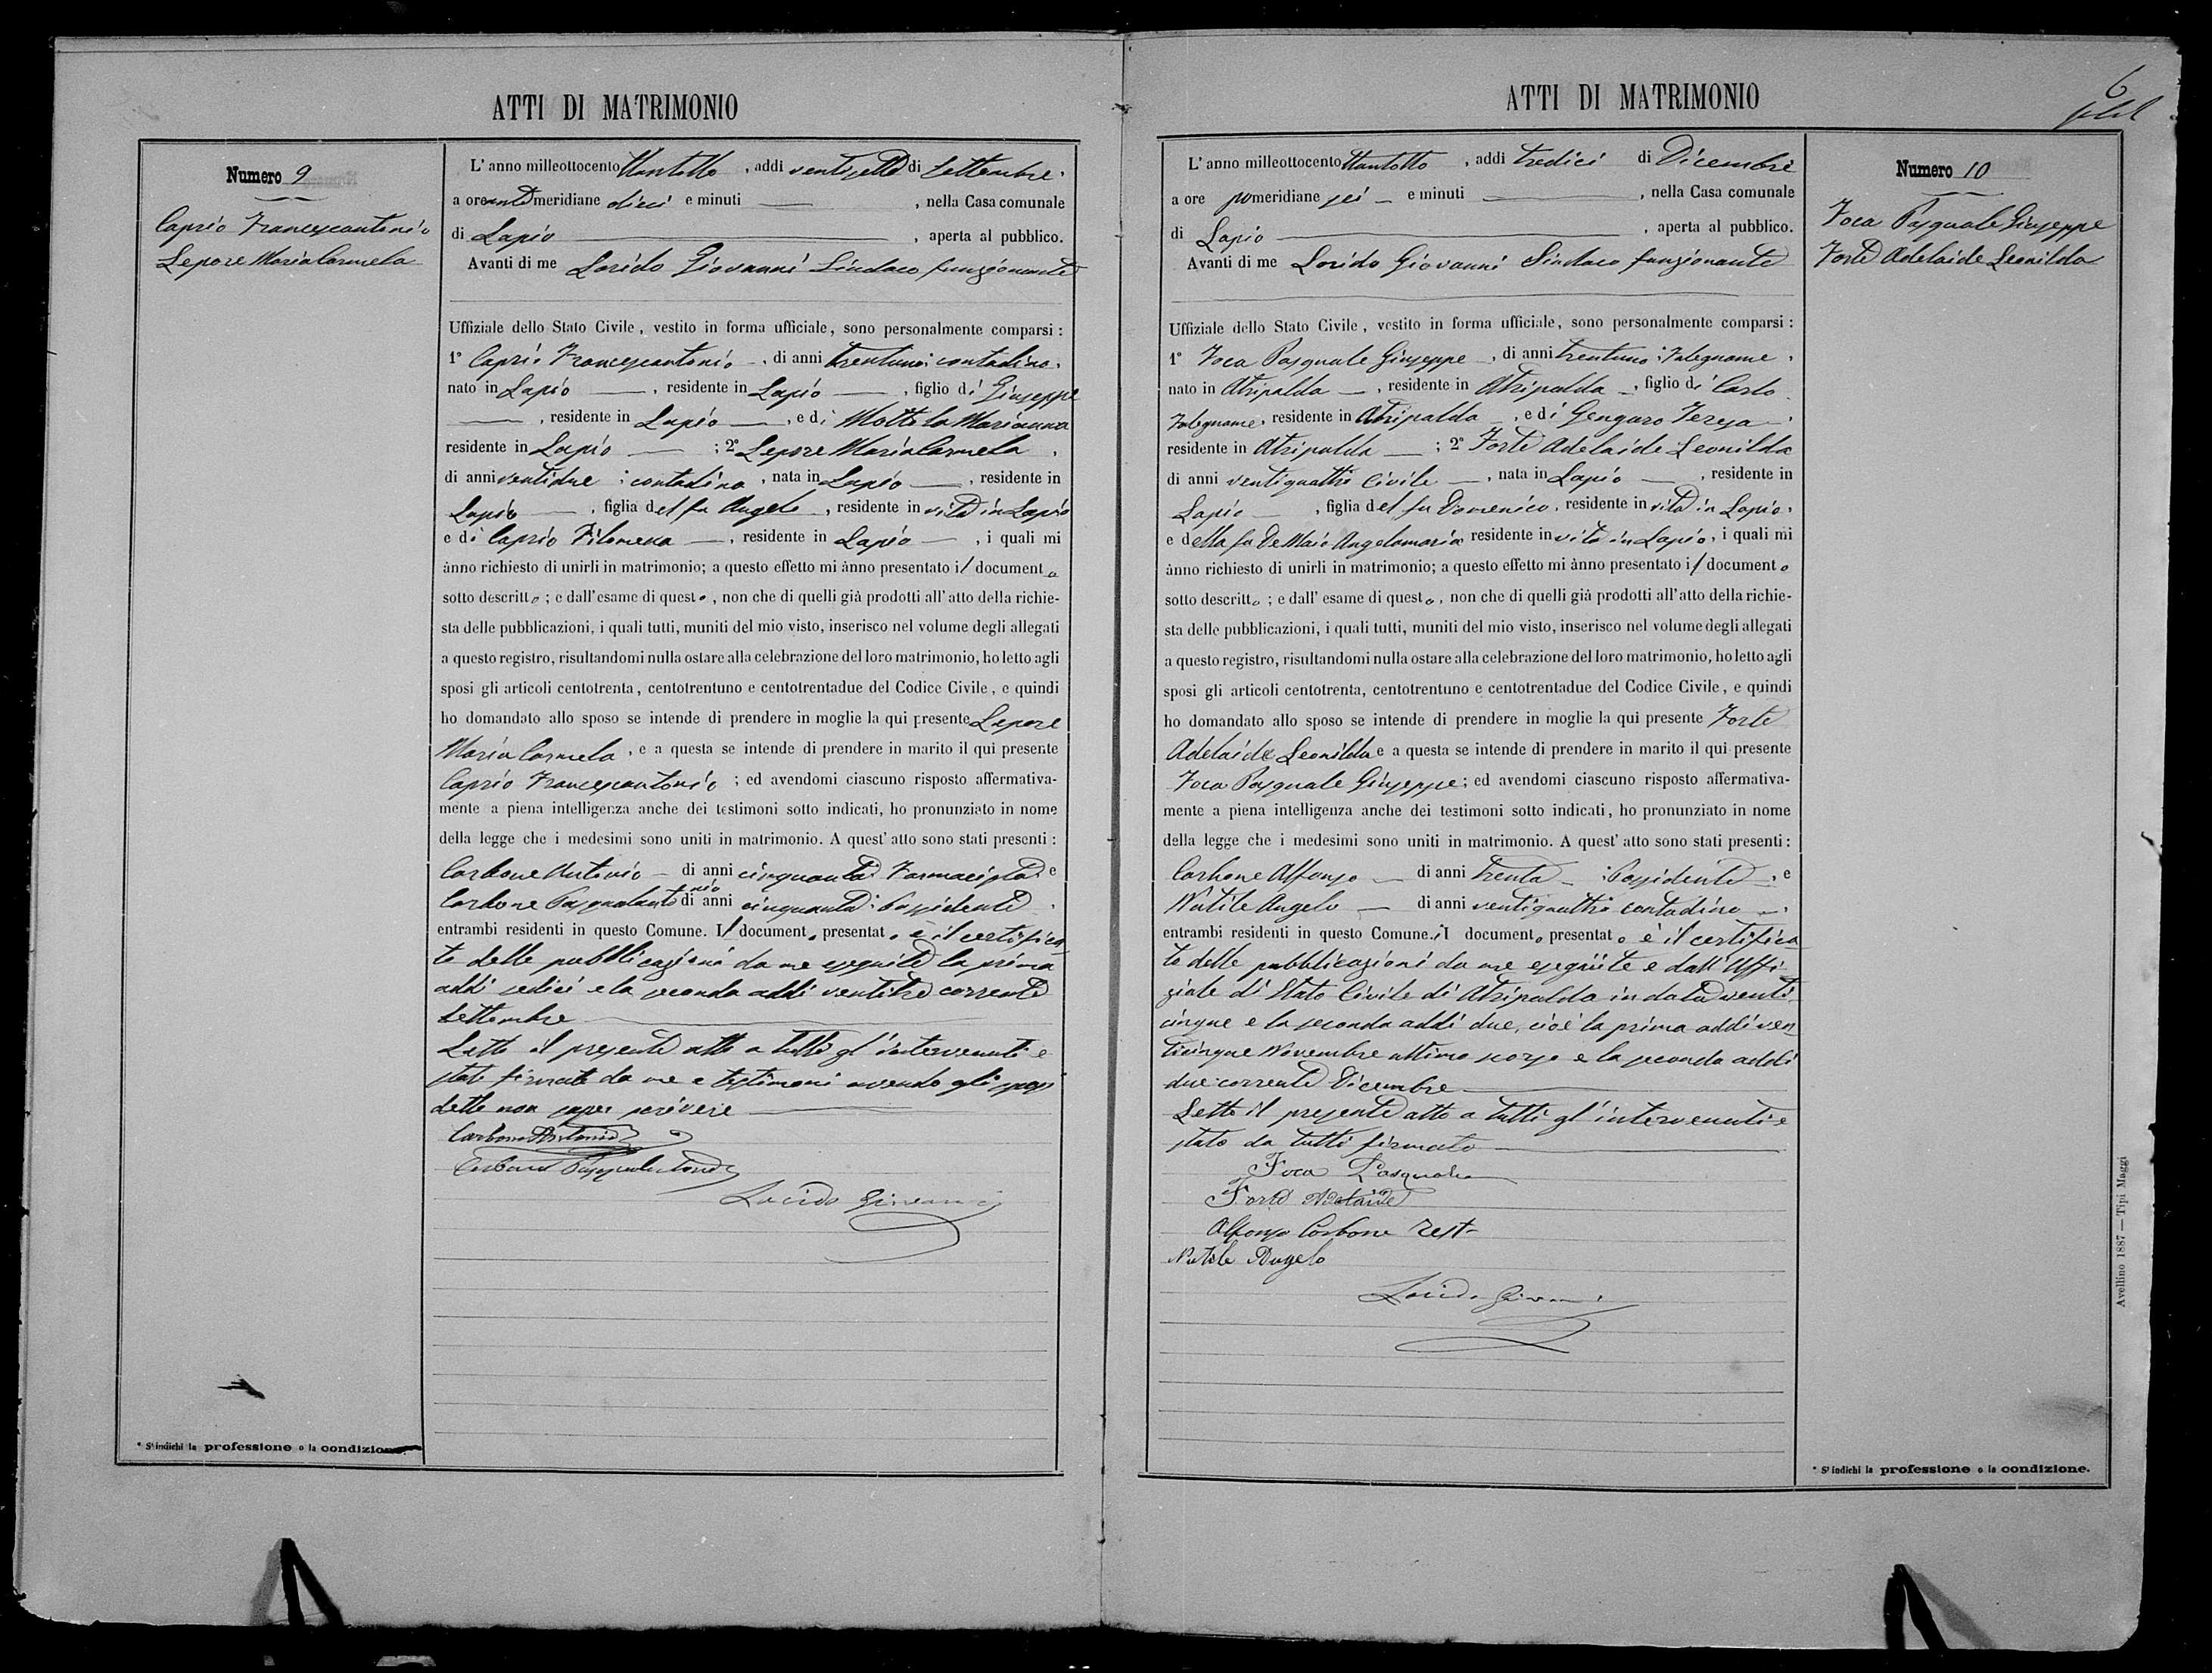 ATTI DI MATRIMONIO
Numero 9
Caprio Francescantonio
Lepore Maria Carmela
L' anno milleottocento ottantotto, addi ventisette di Settembre
a ore antemeridiane dieci e minuti —, nella Casa comunale
di Lapio —, aperta al pubblico.
Avanti di me Lorido Giovanni Sindaco funzionante
Uffiziale dello Stato Civile, vestito in forma ufficiale, sono personalmente comparsi :
1° Caprio Francescantonio, di anni trentuno: contadino,
nato in Lapio —, residente in Lapio —, figlio di Giuseppe
—, residente in Lapio —, e di Mottola Marianna
residente in Lapio — ; 2° Lepore Maria Carmela,
di anni ventidue : contadina, nata in Lapio —, residente in
Lapio —, figlia del fu Angelo, residente in vita in Lapio
e di Caprio Filomena —, residente in Lapio —, i quali mi
ànno richiesto di unirli in matrimonio; a questo effetto mi ànno presentato il documento
sotto descritto ; e dall' esame di questo, non che di quelli già prodotti all' atto della richie-
sta delle pubblicazioni, i quali tutti, muniti del mio visto, inserisco nel volume degli allegati
a questo registro, risultandomi nulla ostare alla celebrazione del loro matrimonio, ho letto agli
sposi gli articoli centotrenta, centotrentuno e centotrentadue del Codice Civile, e quindi
ho domandato allo sposo se intende di prendere in moglie la qui presente Lepore
Maria Carmela, e a questa se intende di prendere in marito il qui presente
Caprio Francescantonio ; ed avendomi ciascuno risposto affermativa-
mente a piena intelligenza anche dei testimoni sotto indicati, ho pronunziato in nome
della legge che i medesimi sono uniti in matrimonio. A quest' atto sono stati presenti :
Carbone Antonio — di anni cinquanta: Farmacista e
Carbone Pasqualantonio di anni cinquanta: Possidente,
entrambi residenti in questo Comune. Il documento presentato è il certifica
to delle pubblicazioni da me eseguite la prima
addì sedici e la seconda addì ventitre corrente
Settembre
Letto il presente atto a tutti gl' intervenuti e
stato firmato da me e testimoni avendo gli sposi
detto non saper scrivere
Carbone Antonio
Carbone Pasqualantonio
Lorido Giovanni
* S' indichi la professione o la condizione.
ATTI DI MATRIMONIO
6
L' anno milleottocento ottantotto, addi tredici di Dicembre
a ore pomeridiane sei — e minuti —, nella Casa comunale
di Lapio —, aperta al pubblico.
Avanti di me Lorido Giovanni Sindaco funzionante
Uffiziale dello Stato Civile, vestito in forma ufficiale, sono personalmente comparsi :
1° Foca Pasquale Giuseppe, di anni trentuno : Falegname,
nato in Atripalda —, residente in Atripalda —, figlio di Carlo
Falegname, residente in Atripalda —, e di Gengaro Teresa —,
residente in Atripalda — ; 2° Forte Adelaide Leonilda
di anni ventiquattro Civile —, nata in Lapio —, residente in
Lapio —, figlia del fu Domenico, residente in vita in Lapio,
e della fu De Maio Angelamaria residente in vita in Lapio, i quali mi
ànno richiesto di unirli in matrimonio; a questo effetto mi ànno presentato il documento
sotto descritto ; e dall' esame di questo, non che di quelli già prodotti all' atto della richie-
sta delle pubblicazioni, i quali tutti, muniti del mio visto, inserisco nel volume degli allegati
a questo registro, risultandomi nulla ostare alla celebrazione del loro matrimonio, ho letto agli
sposi gli articoli centotrenta, centotrentuno e centotrentadue del Codice Civile, e quindi
ho domandato allo sposo se intende di prendere in moglie la qui presente Forte
Adelaide Leonilda e a questa se intende di prendere in marito il qui presente
Foca Pasquale Giuseppe; ed avendomi ciascuno risposto affermativa-
mente a piena intelligenza anche dei testimoni sotto indicati, ho pronunziato in nome
della legge che i medesimi sono uniti in matrimonio. A quest' atto sono stati presenti :
Carbone Alfonso — di anni trenta — : Possidente, e
Nutile Angelo — di anni ventiquattro contadino —,
entrambi residenti in questo Comune. il documento presentato è il certifica
to delle pubblicazioni da me eseguite e dall' Uffi
ziale di Stato Civile di Atripalda in data venti
cinque e la seconda addì due, cioè la prima addì ven
ticinque Novembre ultimo scorso e la seconda addì
due corrente Dicembre
Letto il presente atto a tutti gl' intervenuti e
stato da tutti firmato
Foca Pasquale
Forte Adelaide
Alfonso Carbone Test.
Nutile Angelo
Lorido Giovanni
Numero 10
Foca Pasquale Giuseppe
Forte Adelaide Leonilda
* S' indichi la professione o la condizione.
Avellino 1887 — Tipi Maggi